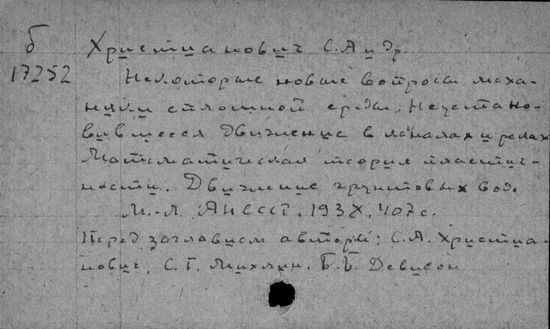 б
17252
Христианович С.А и др.
Некоторые новые вопросы меха-
ники сплошной среды. Неустано-
вившееся движение в каналах и реках
Математическая теория пластич-
ности. Движение грунтовых вод.
М.-Л. АНСССР, 193X, 407 с.
Перед заглавием авторы: С.А. Христиа-
нович, С.Г. Михлин, Б.Б. Девисон